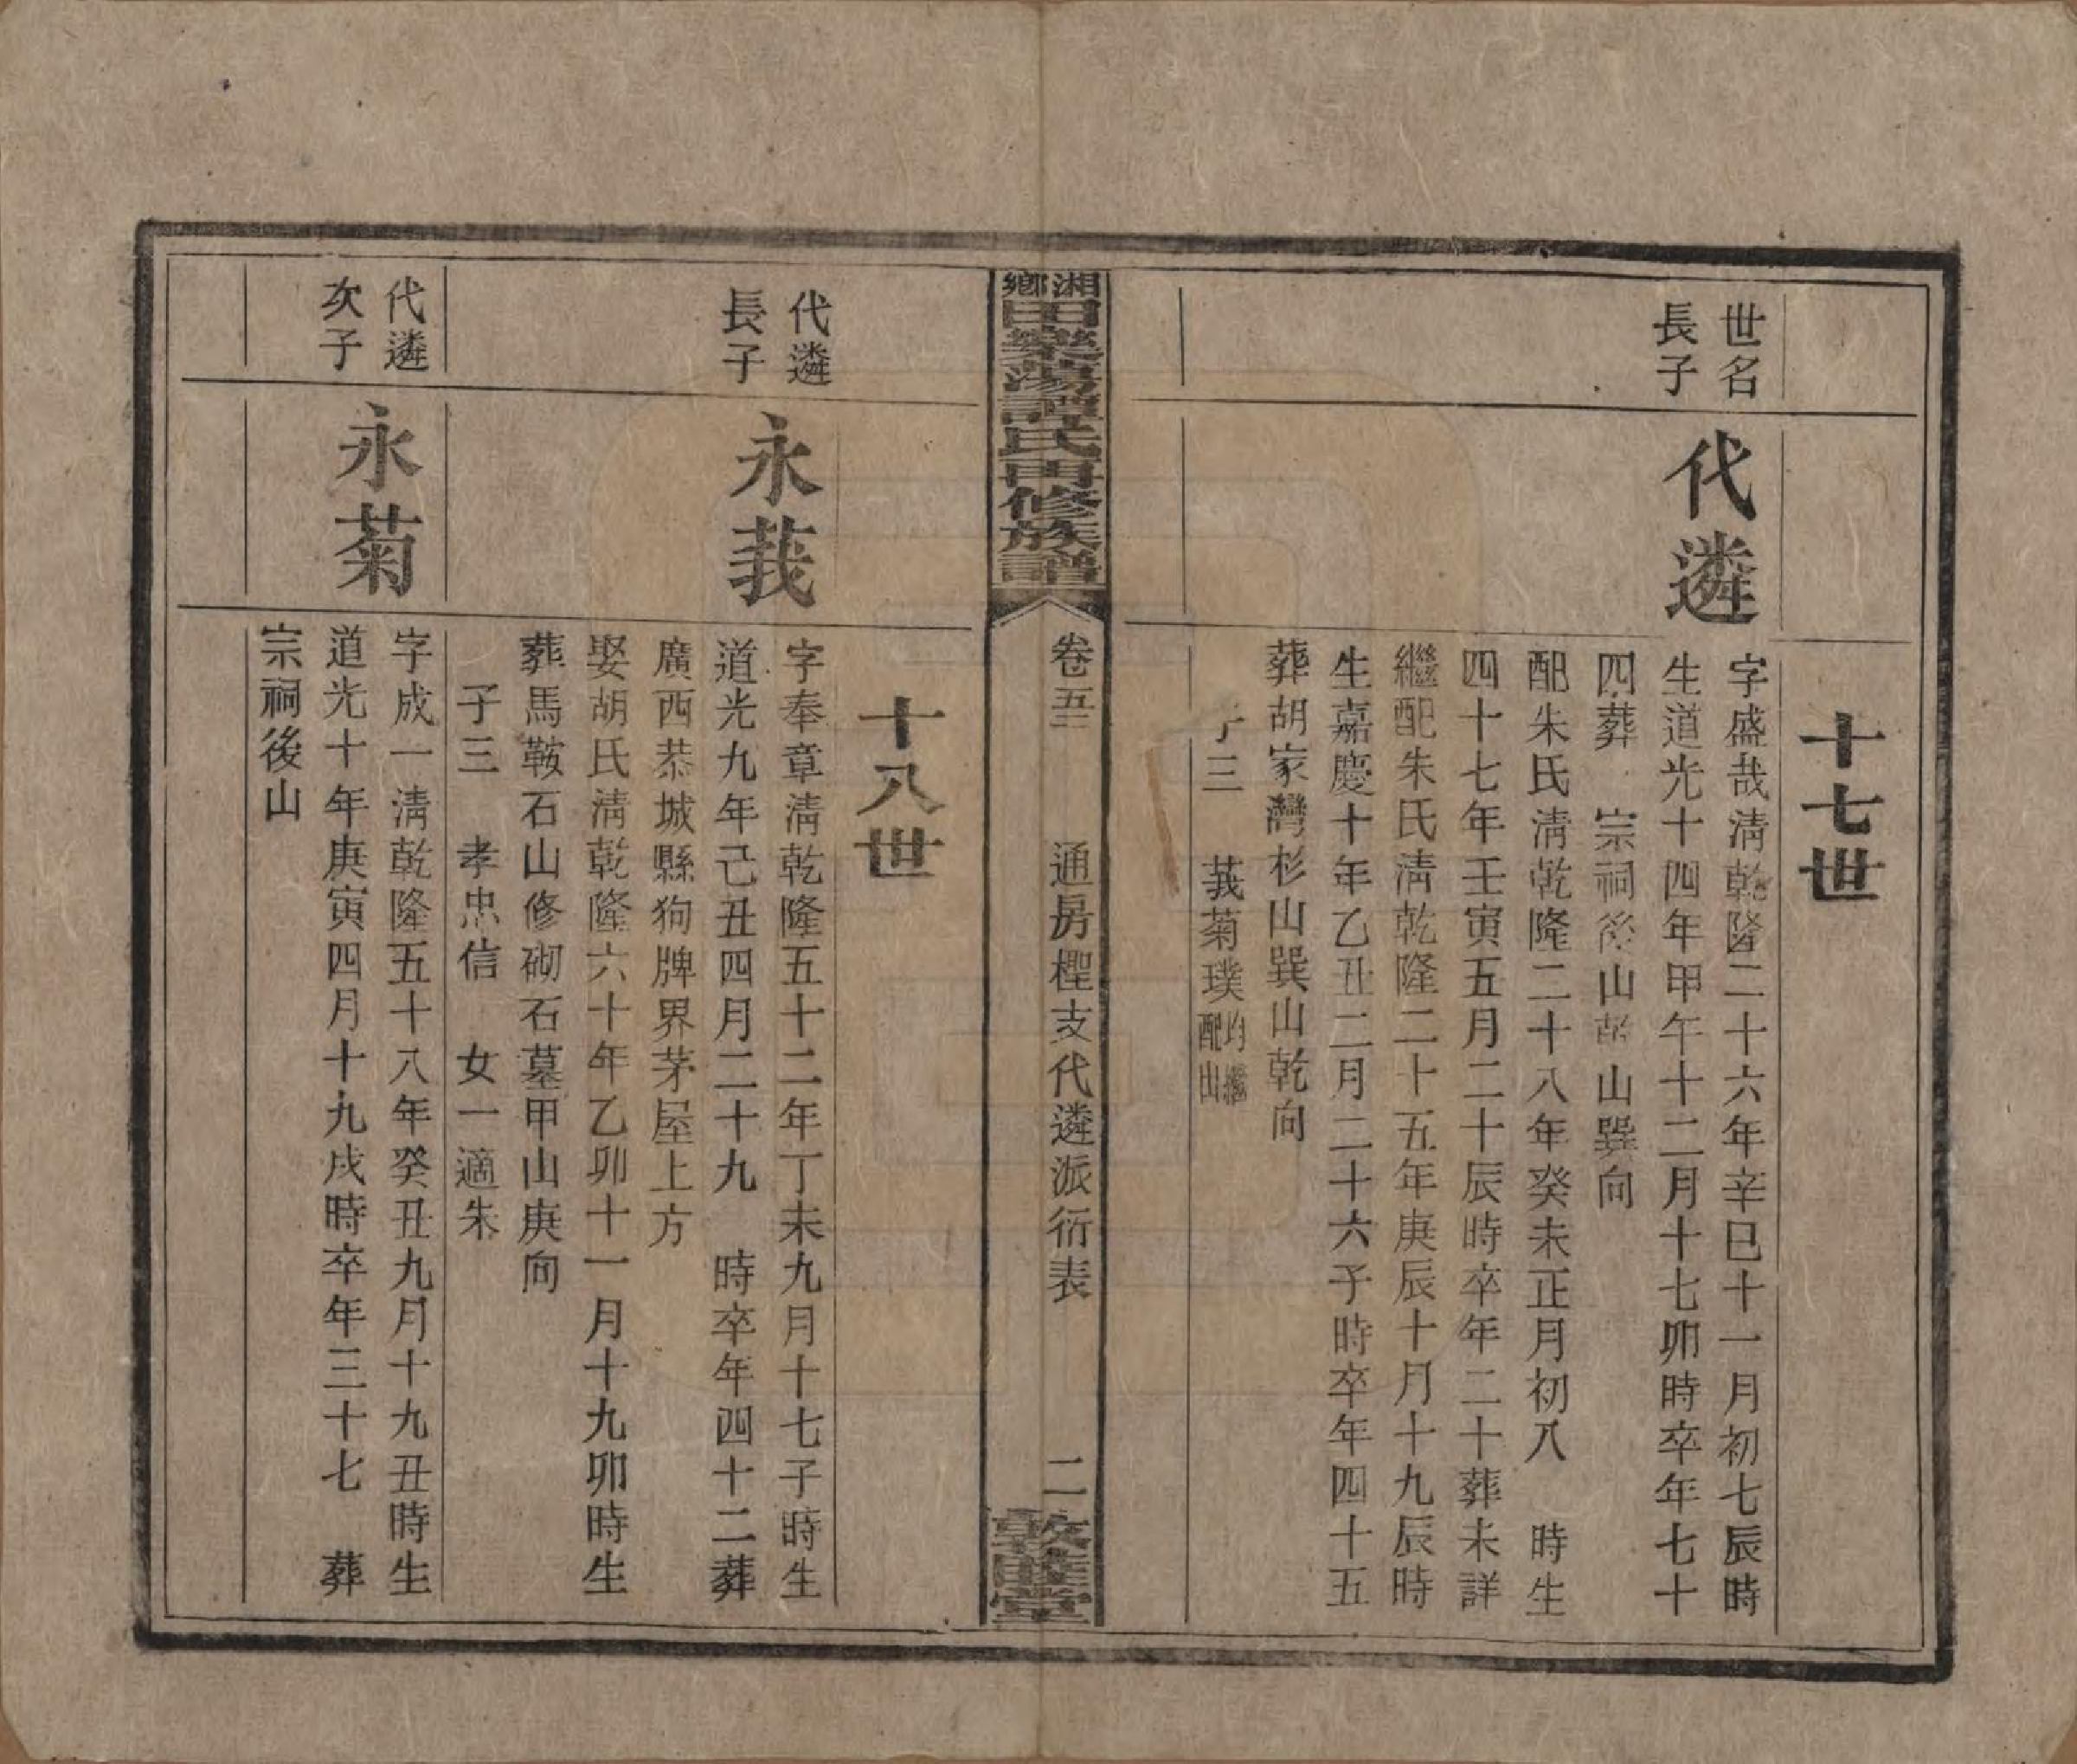 十七世
世名
長子
代遴
字盛哉淸乾隆二十六年辛巳十一月初七辰時
生道光十四年甲午十二月十七卯時卒年七十
四葬　宗祠後山乾山巽向
配朱氏淸乾隆二十八年癸未正月初八　時生
四十七年壬寅五月二十辰時卒年二十葬未詳
繼配朱氏淸乾隆二十五年庚辰十月十九辰時
生嘉慶十年乙丑二月二十六子時卒年四十五
葬胡家灣杉山巽山乾向
子三　莪菊璞均繼配出
湘鄉田樂蕩譚氏四修族譜
卷五二　通房檉支代遴派衍表　二
敦睦堂
十八世
代遴
長子
永莪
字奉章淸乾隆五十二年丁未九月十七子時生
道光九年己丑四月二十九　時卒年四十二葬
廣西恭城縣狗牌界茅屋上方
娶胡氏淸乾隆六十年乙卯十一月十九卯時生
葬馬鞍石山修砌石墓甲山庚向
子三　孝忠信　女一適朱
代遴
次子
永菊
字成一淸乾隆五十八年癸丑九月十九丑時生
道光十年庚寅四月十九戌時卒年三十七　葬
宗祠後山